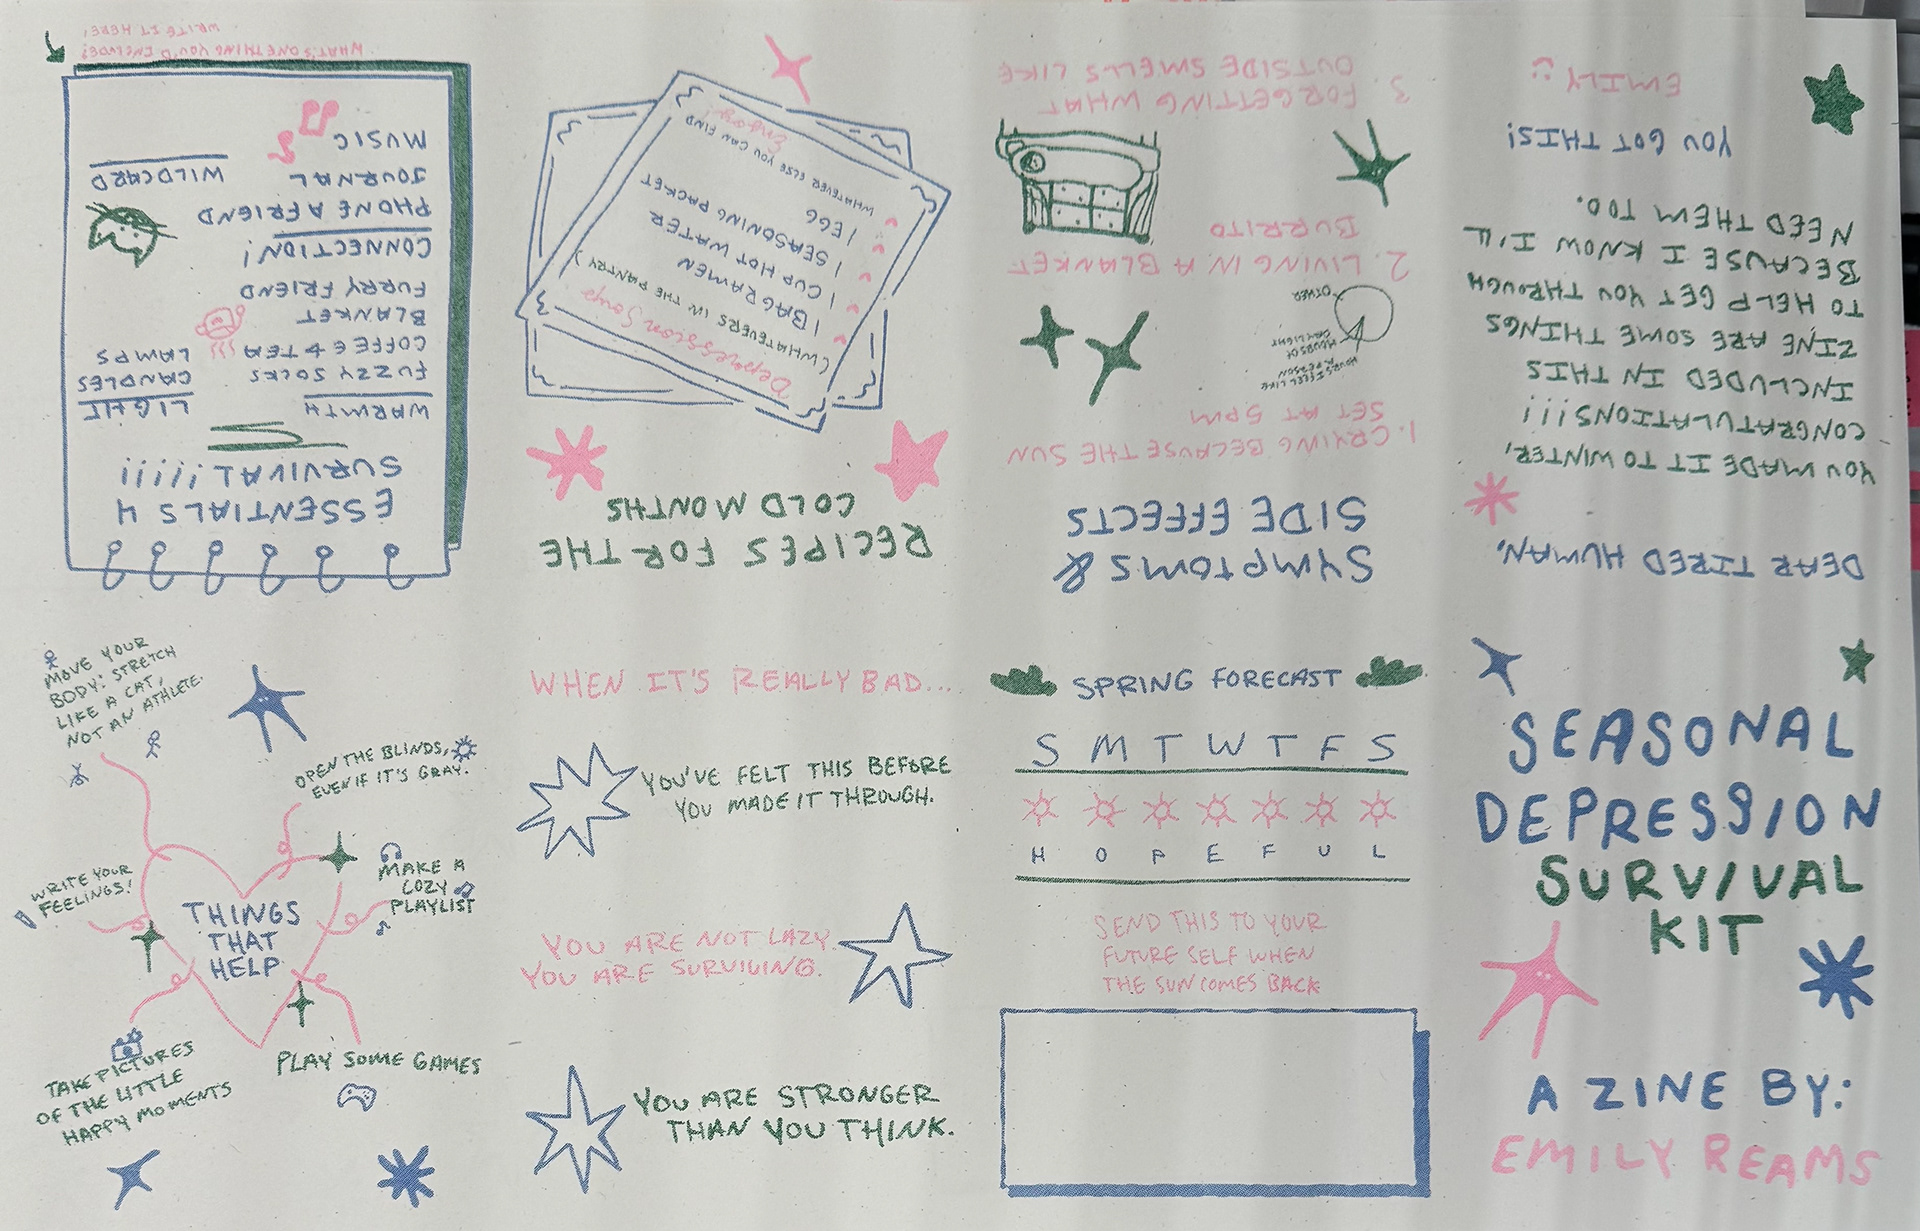 SEASONAL
DEPRESSION
SURVIVAL
KIT
A ZINE BY:
EMILY REAMS
DEAR TIRED HUMAN,
YOU MADE IT TO WINTER,
CONGRATULATIONS!!!
INCLUDED IN THIS
ZINE ARE SOME THINGS
TO HELP GET YOU THROUGH
BECAUSE I KNOW I'LL
NEED THEM TOO.
YOU GOT THIS!
EMILY :)
SYMPTOMS &
SIDE EFFECTS
1. CRYING BECAUSE THE SUN
SET AT 5PM
HOURS I FEEL LIKE
A PERSON
HOURS OF
DAYLIGHT
OTHER
2. LIVING IN A BLANKET
BURRITO
3. FORGETTING WHAT
OUTSIDE SMELLS LIKE
RECIPES FOR THE
COLD MONTHS
Depression Soup
(WHATEVERS IN THE PANTRY)
1 BAG RAMEN
1 CUP HOT WATER
1 SEASONING PACKET
1 EGG
WHATEVER ELSE YOU CAN FIND
Enjoy!
ESSENTIALS 4
SURVIVAL!!!!!
WARMTH
FUZZY SOCKS
COFFEE & TEA
BLANKET
FURRY FRIEND
LIGHT
CANDLES
LAMPS
CONNECTION!
PHONE A FRIEND
JOURNAL
MUSIC
WILDCARD
WHAT'S ONE THING YOU'D INCLUDE?
WRITE IT HERE!
THINGS
THAT
HELP
MOVE YOUR
BODY: STRETCH
LIKE A CAT,
NOT AN ATHLETE.
OPEN THE BLINDS,
EVEN IF IT'S GRAY.
WRITE YOUR
FEELINGS!
MAKE A
COZY
PLAYLIST
TAKE PICTURES
OF THE LITTLE
HAPPY MOMENTS
PLAY SOME GAMES
WHEN IT'S REALLY BAD...
YOU'VE FELT THIS BEFORE
YOU MADE IT THROUGH.
YOU ARE NOT LAZY.
YOU ARE SURVIVING.
YOU ARE STRONGER
THAN YOU THINK.
SPRING FORECAST
S M T W T F S
H O P E F U L
SEND THIS TO YOUR
FUTURE SELF WHEN
THE SUN COMES BACK